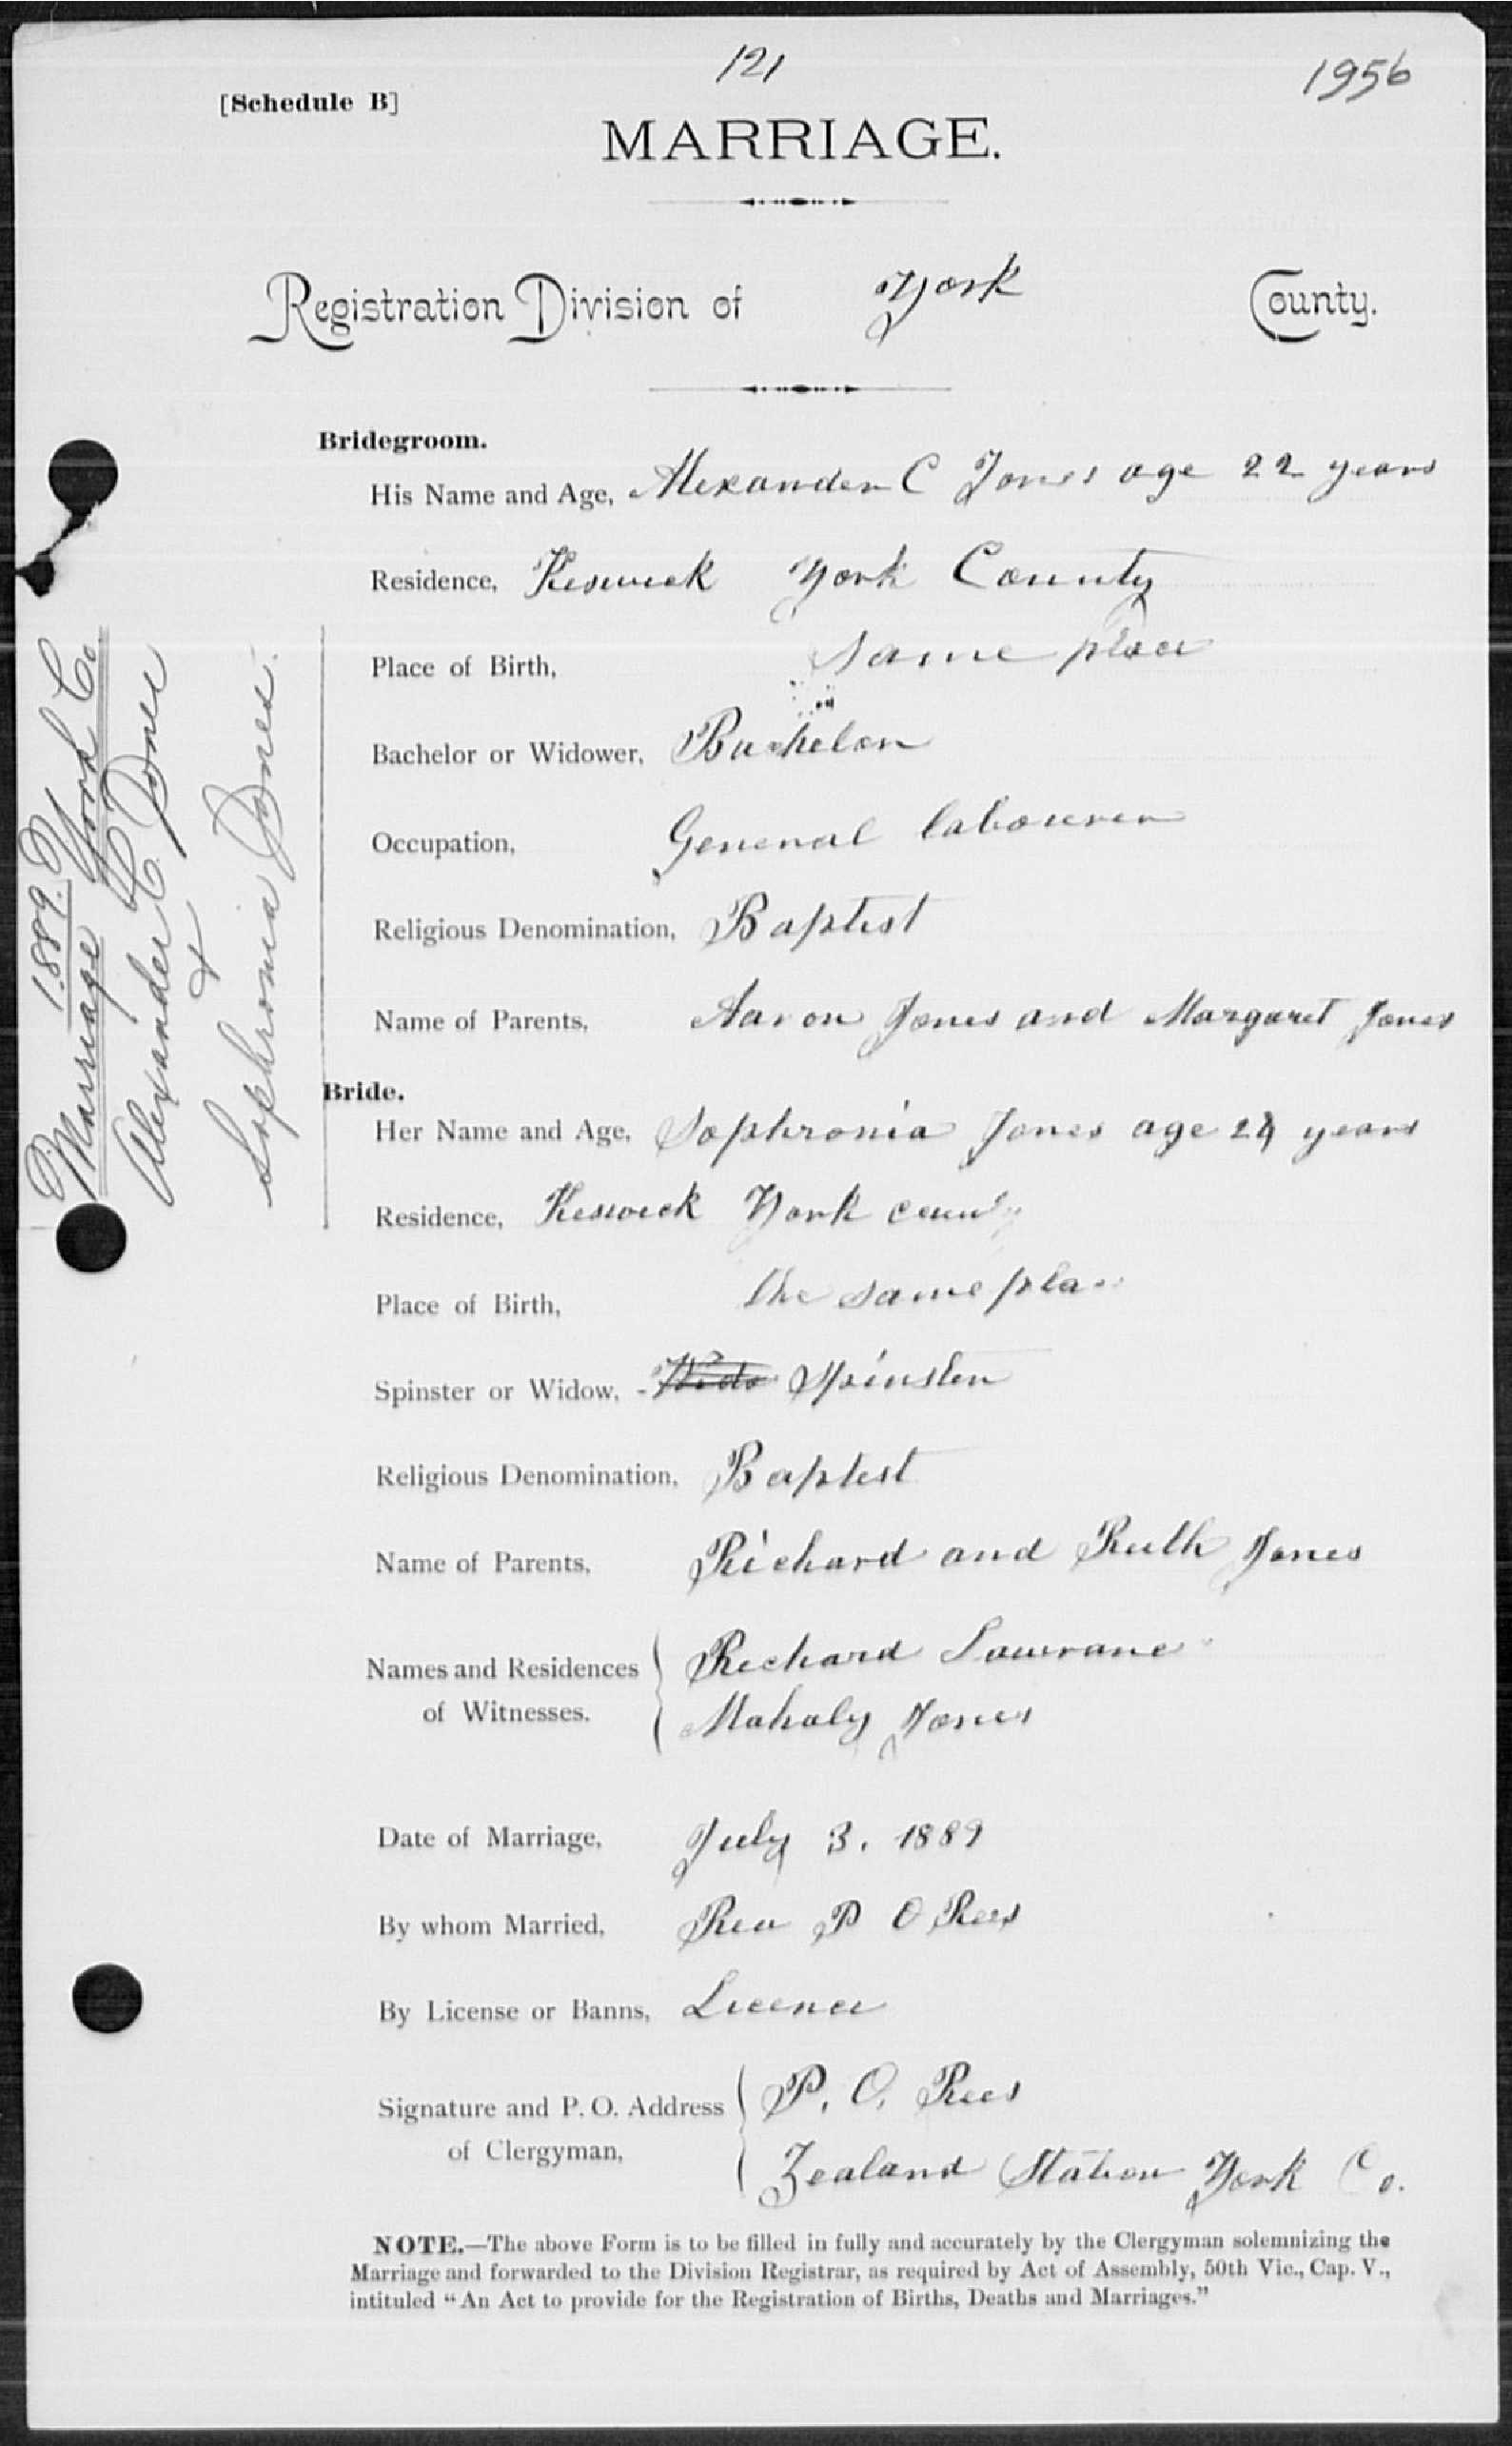 121
1956
[Schedule B]
MARRIAGE.
Registration Division of York County.
Bridegroom.
His Name and Age, Alexander C Jones age 22 years
Residence, Keswick York County
Place of Birth, Same place
Bachelor or Widower, Bachelor
Occupation, General labourer
Religious Denomination, Baptist
Name of Parents, Aaron Jones and Margaret Jones
Bride.
Her Name and Age, Sophronia Jones age years
Residence, Keswick York county
Place of Birth, the same place
Spinster or Widow, Wido Spinster
Religious Denomination, Baptist
Name of Parents, Richard and Ruth Jones
Names and Residences of Witnesses. Richard
Mahaly Jones
Date of Marriage, July 3. 1889
By whom Married, Rev P O Rees
By License or Banns, Licence
Signature and P.O. Address of Clergyman, P. O. Rees
Zealand Station York Co.
NOTE.—The above Form is to be filled in fully and accurately by the Clergyman solemnizing the
Marriage and forwarded to the Division Registrar, as required by Act of Assembly, 50th Vic., Cap. V.,
intituled "An Act to provide for the Registration of Births, Deaths and Marriages."
1889. York Co
Marriage
Alexander C. Jones
&
Sophronia Jones.